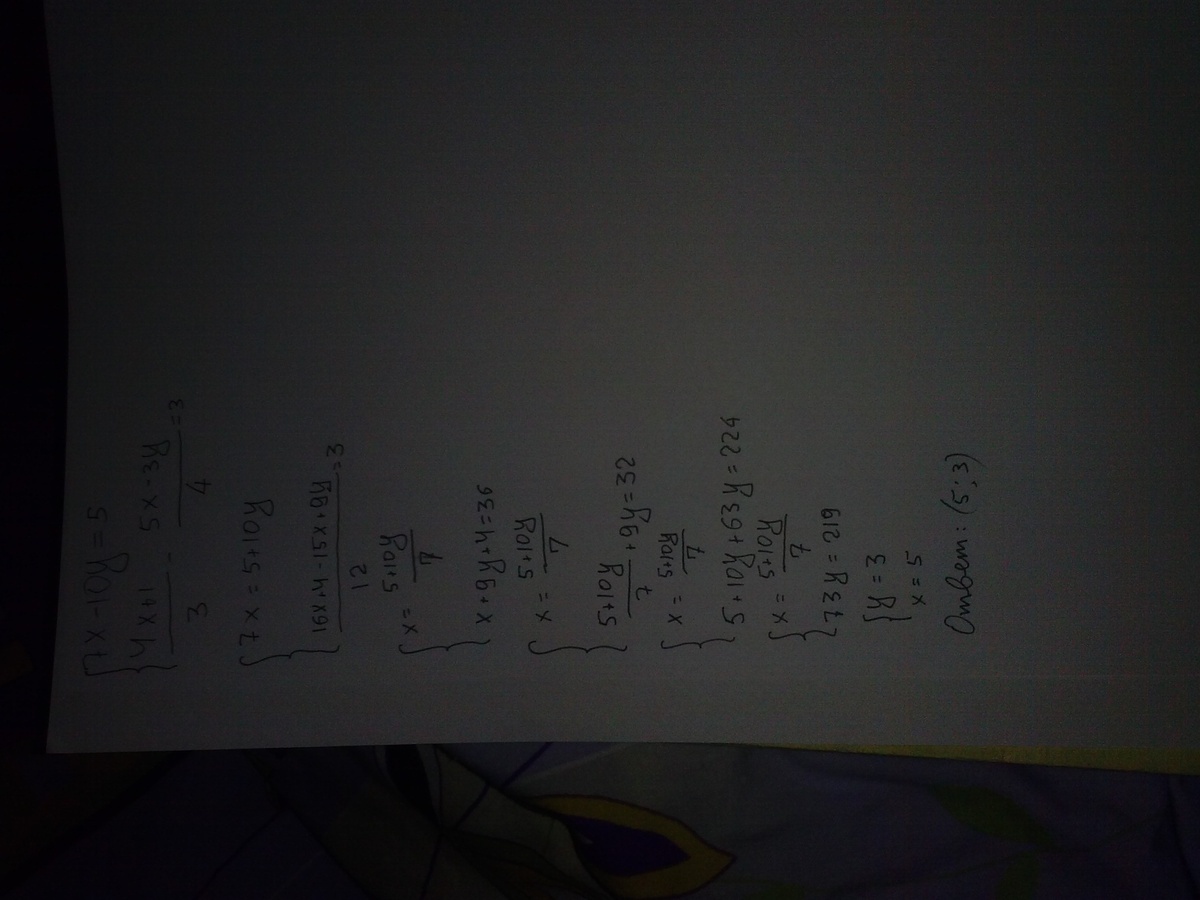 7x-10y=5
4x+1/3 - 5x-3y/4 =3
7x=5+10y
16x+4-15x+9y/12 =3
x= 5+10y/7
x+9y+4=36
x= 5+10y/7
5+10y/7 +9y=32
x= 5+10y/7
5+10y+63y=224
x= 5+10y/7
73y=219
y=3
x=5
Ответ: (5;3)